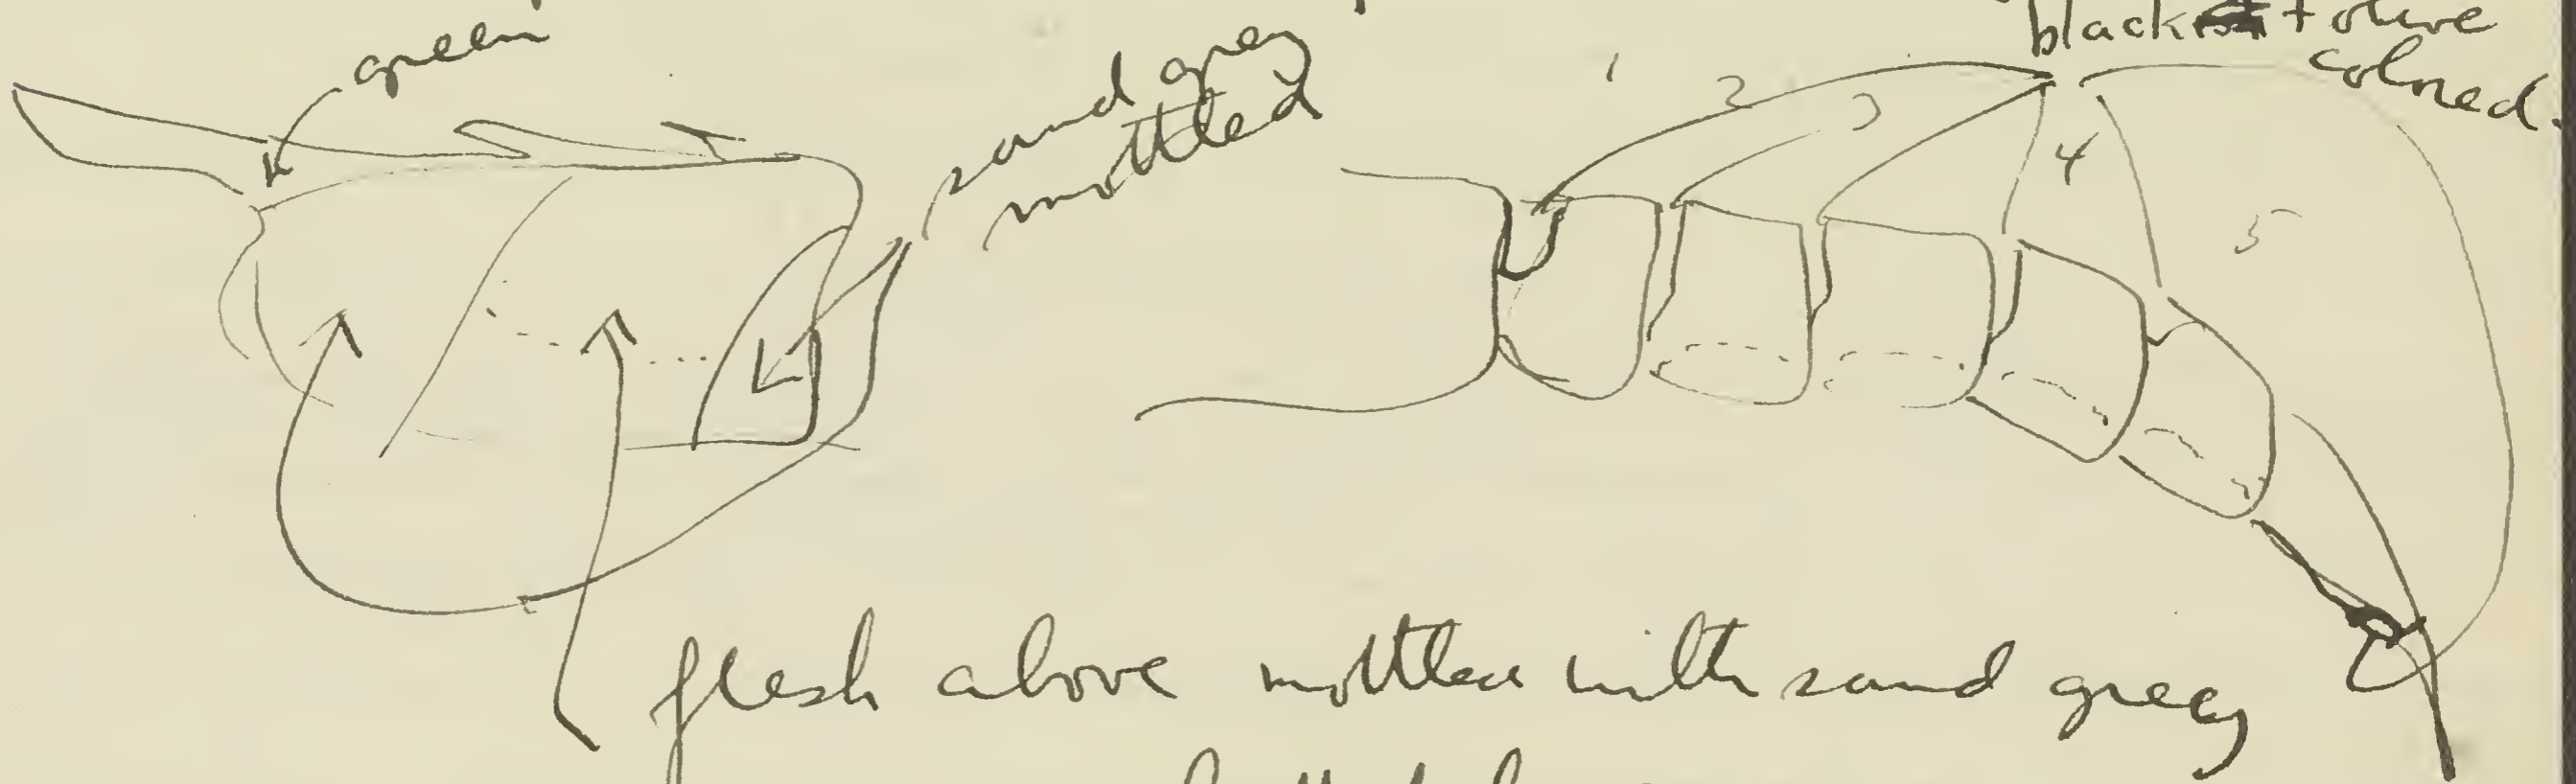 green
sand grey
mottled
black + olive
colored.
1
2
3
4
5
flesh above mottled with sand grey